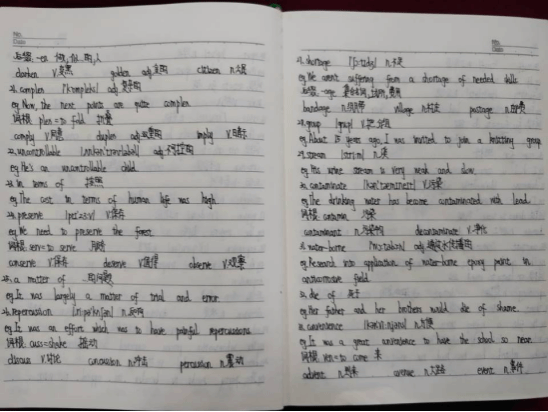 后缀: -en 使, 由…制, 人
darken v.变黑 golden adj.金的 citizen n.公民
21.complex /'kɒmpleks/ adj.复杂的
eg.Now, the next points are quite complex.
词根: plex=to fold 折叠
comply v.同意 duplex adj.二重的 imply v.暗示
22.uncontrollable adj.不可控的
eg.He's an uncontrollable child.
23.in terms of 按照
eg.The cost in terms of human life was high.
24.preserve v.保存
eg.We need to preserve the forest.
词根: serv=to serve 服务
conserve v.保存 deserve v.值得 observe v.观察
25.a matter of …的问题
eg.It was largely a matter of trial and error.
26.repercussion n.反响
eg.It was an effort which was to have painful repercussions.
词根: cuss=shake 振动
discuss v.讨论 concussion n.冲击 percussion n.震动
27.shortage n.不足
eg.We aren't suffering from a shortage of needed skills.
后缀: -age
bandage n.绷带 village n.村庄 postage n.邮费
28.group v.把…分组
eg.About 15 years ago, I was invited to join a knitting group.
29.stream n.
eg.His urine stream is very weak and slow.
30.contaminate v.污染
eg.The drinking water has become contaminated with lead.
词根: contamin 污染
contaminant n.污染物 decontaminate v.净化
31.water-borne adj.
eg.Research into application of water-borne epoxy paint in
anticorrosive field.
32.die of 死于
eg.Her father and her brothers would die of shame.
33.convenience n.方便
eg.It was a great convenience to have the school so near.
词根: ven=to come 来
advent n.到来 avenue n.大道 event n.事件